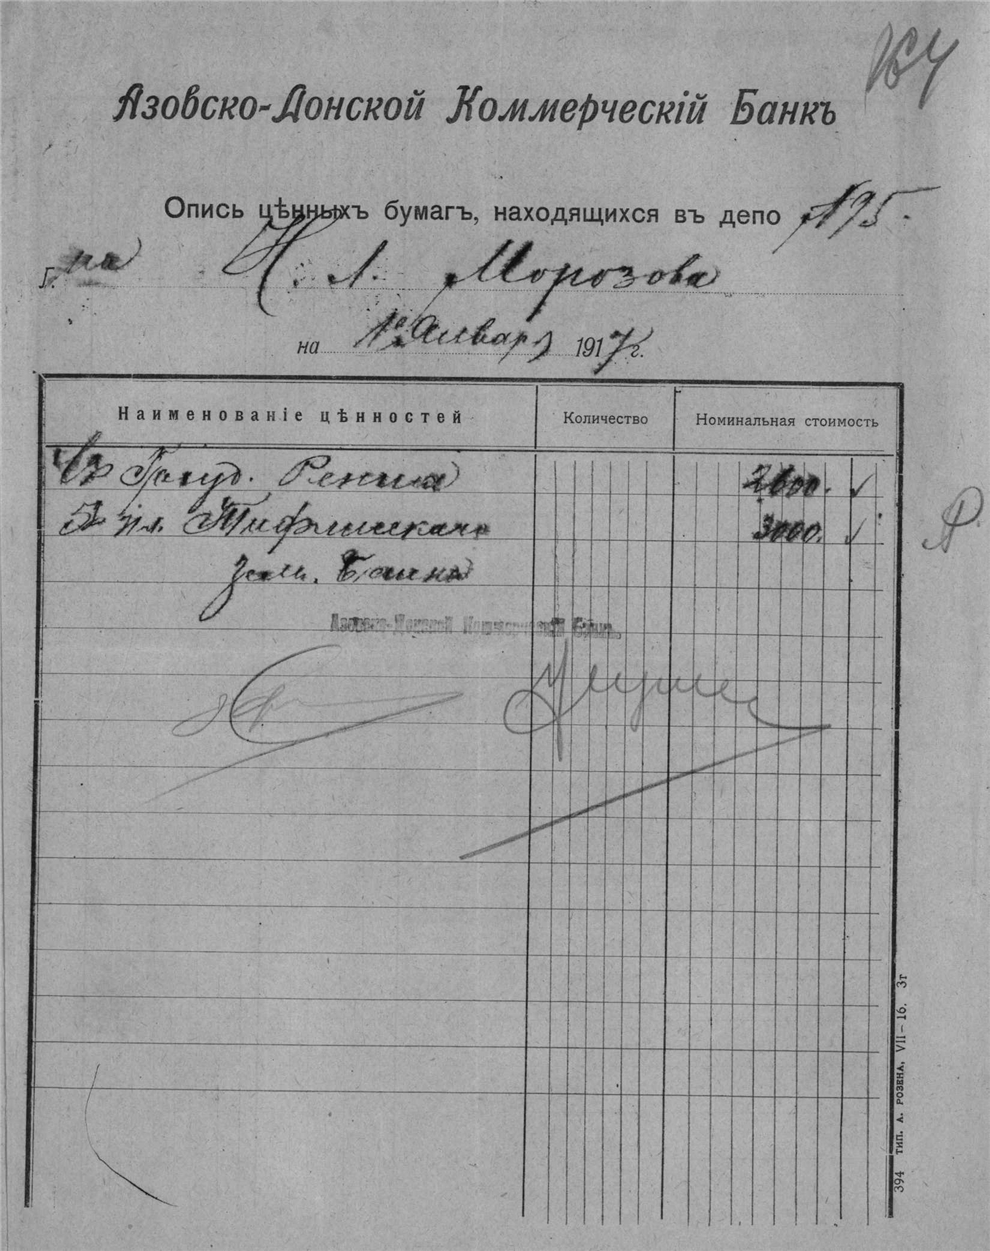 164
Азовско-Донской Коммерческій Банкъ
Опись цѣнныхъ бумагъ, находящихся въ депо № 195.
Г. на Н. А. Морозова
на 1е Января 1917 г.
Наименованіе цѣнностей Количество Номинальная стоимость
Госуд. Рента 2600. ✓
5% Тифлисскаго 3000. ✓
зем. Банка
Азовско-Донской Коммерческій Банкъ.
394 тип. А. Розена, VII–16. 3г